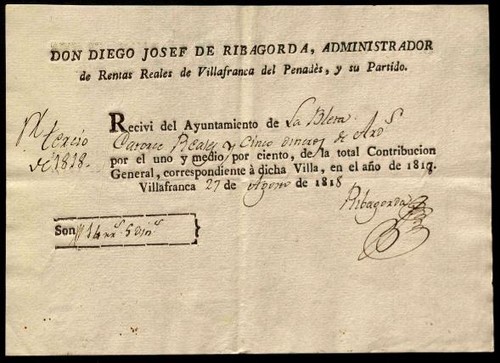 DON DIEGO JOSEF DE RIBAGORDA, ADMINISTRADOR
de Rentas Reales de Villafranca del Penadès, y su Partido.
tercio
de 1818.
Recivi del Ayuntamiento de La Bleda
Catorce Reales y Cinco dineros de Ard.s
por el uno y medio por ciento, de la total Contribucion
General, correspondiente à dicha Villa, en el año de 1817.
Villafranca 27 de Agosto de 1818
Ribagorda
Son 14 rr.s 5 din.s